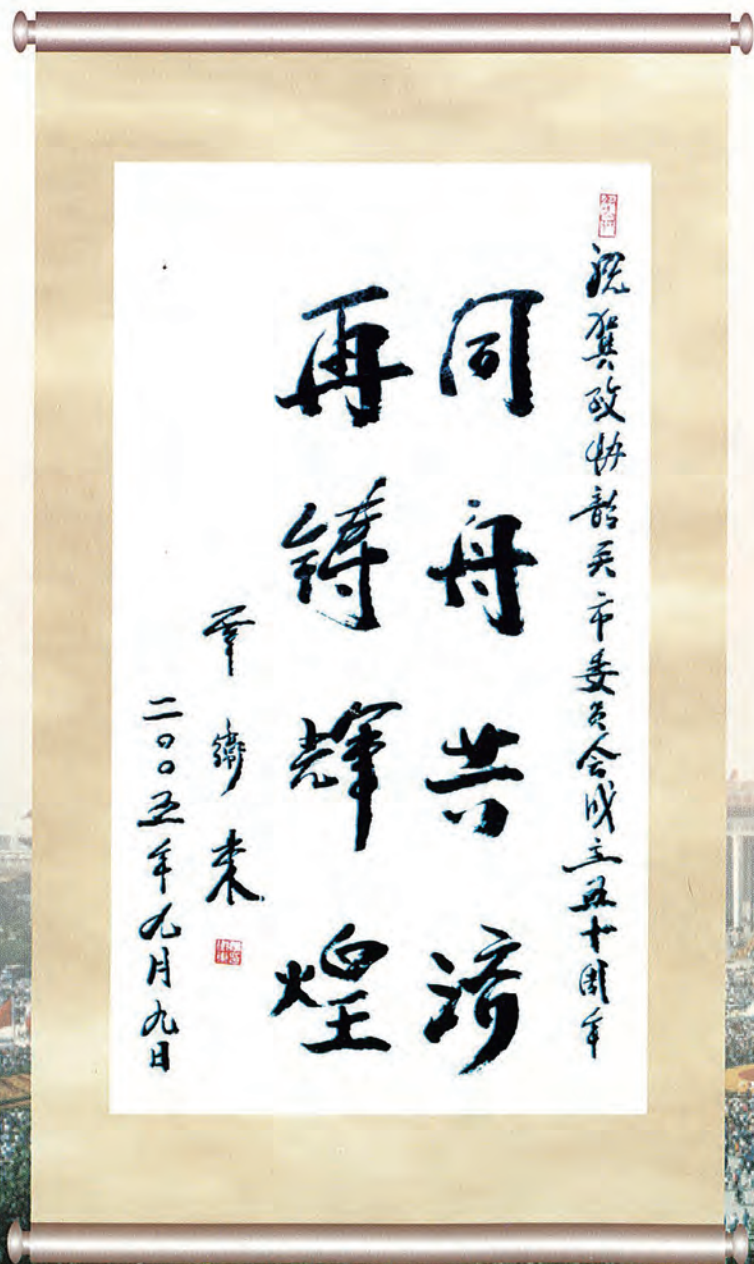 祝贺政协韶关市委员会成立五十周年
同舟共济
再铸辉煌
覃卫东
二〇〇五年九月九日